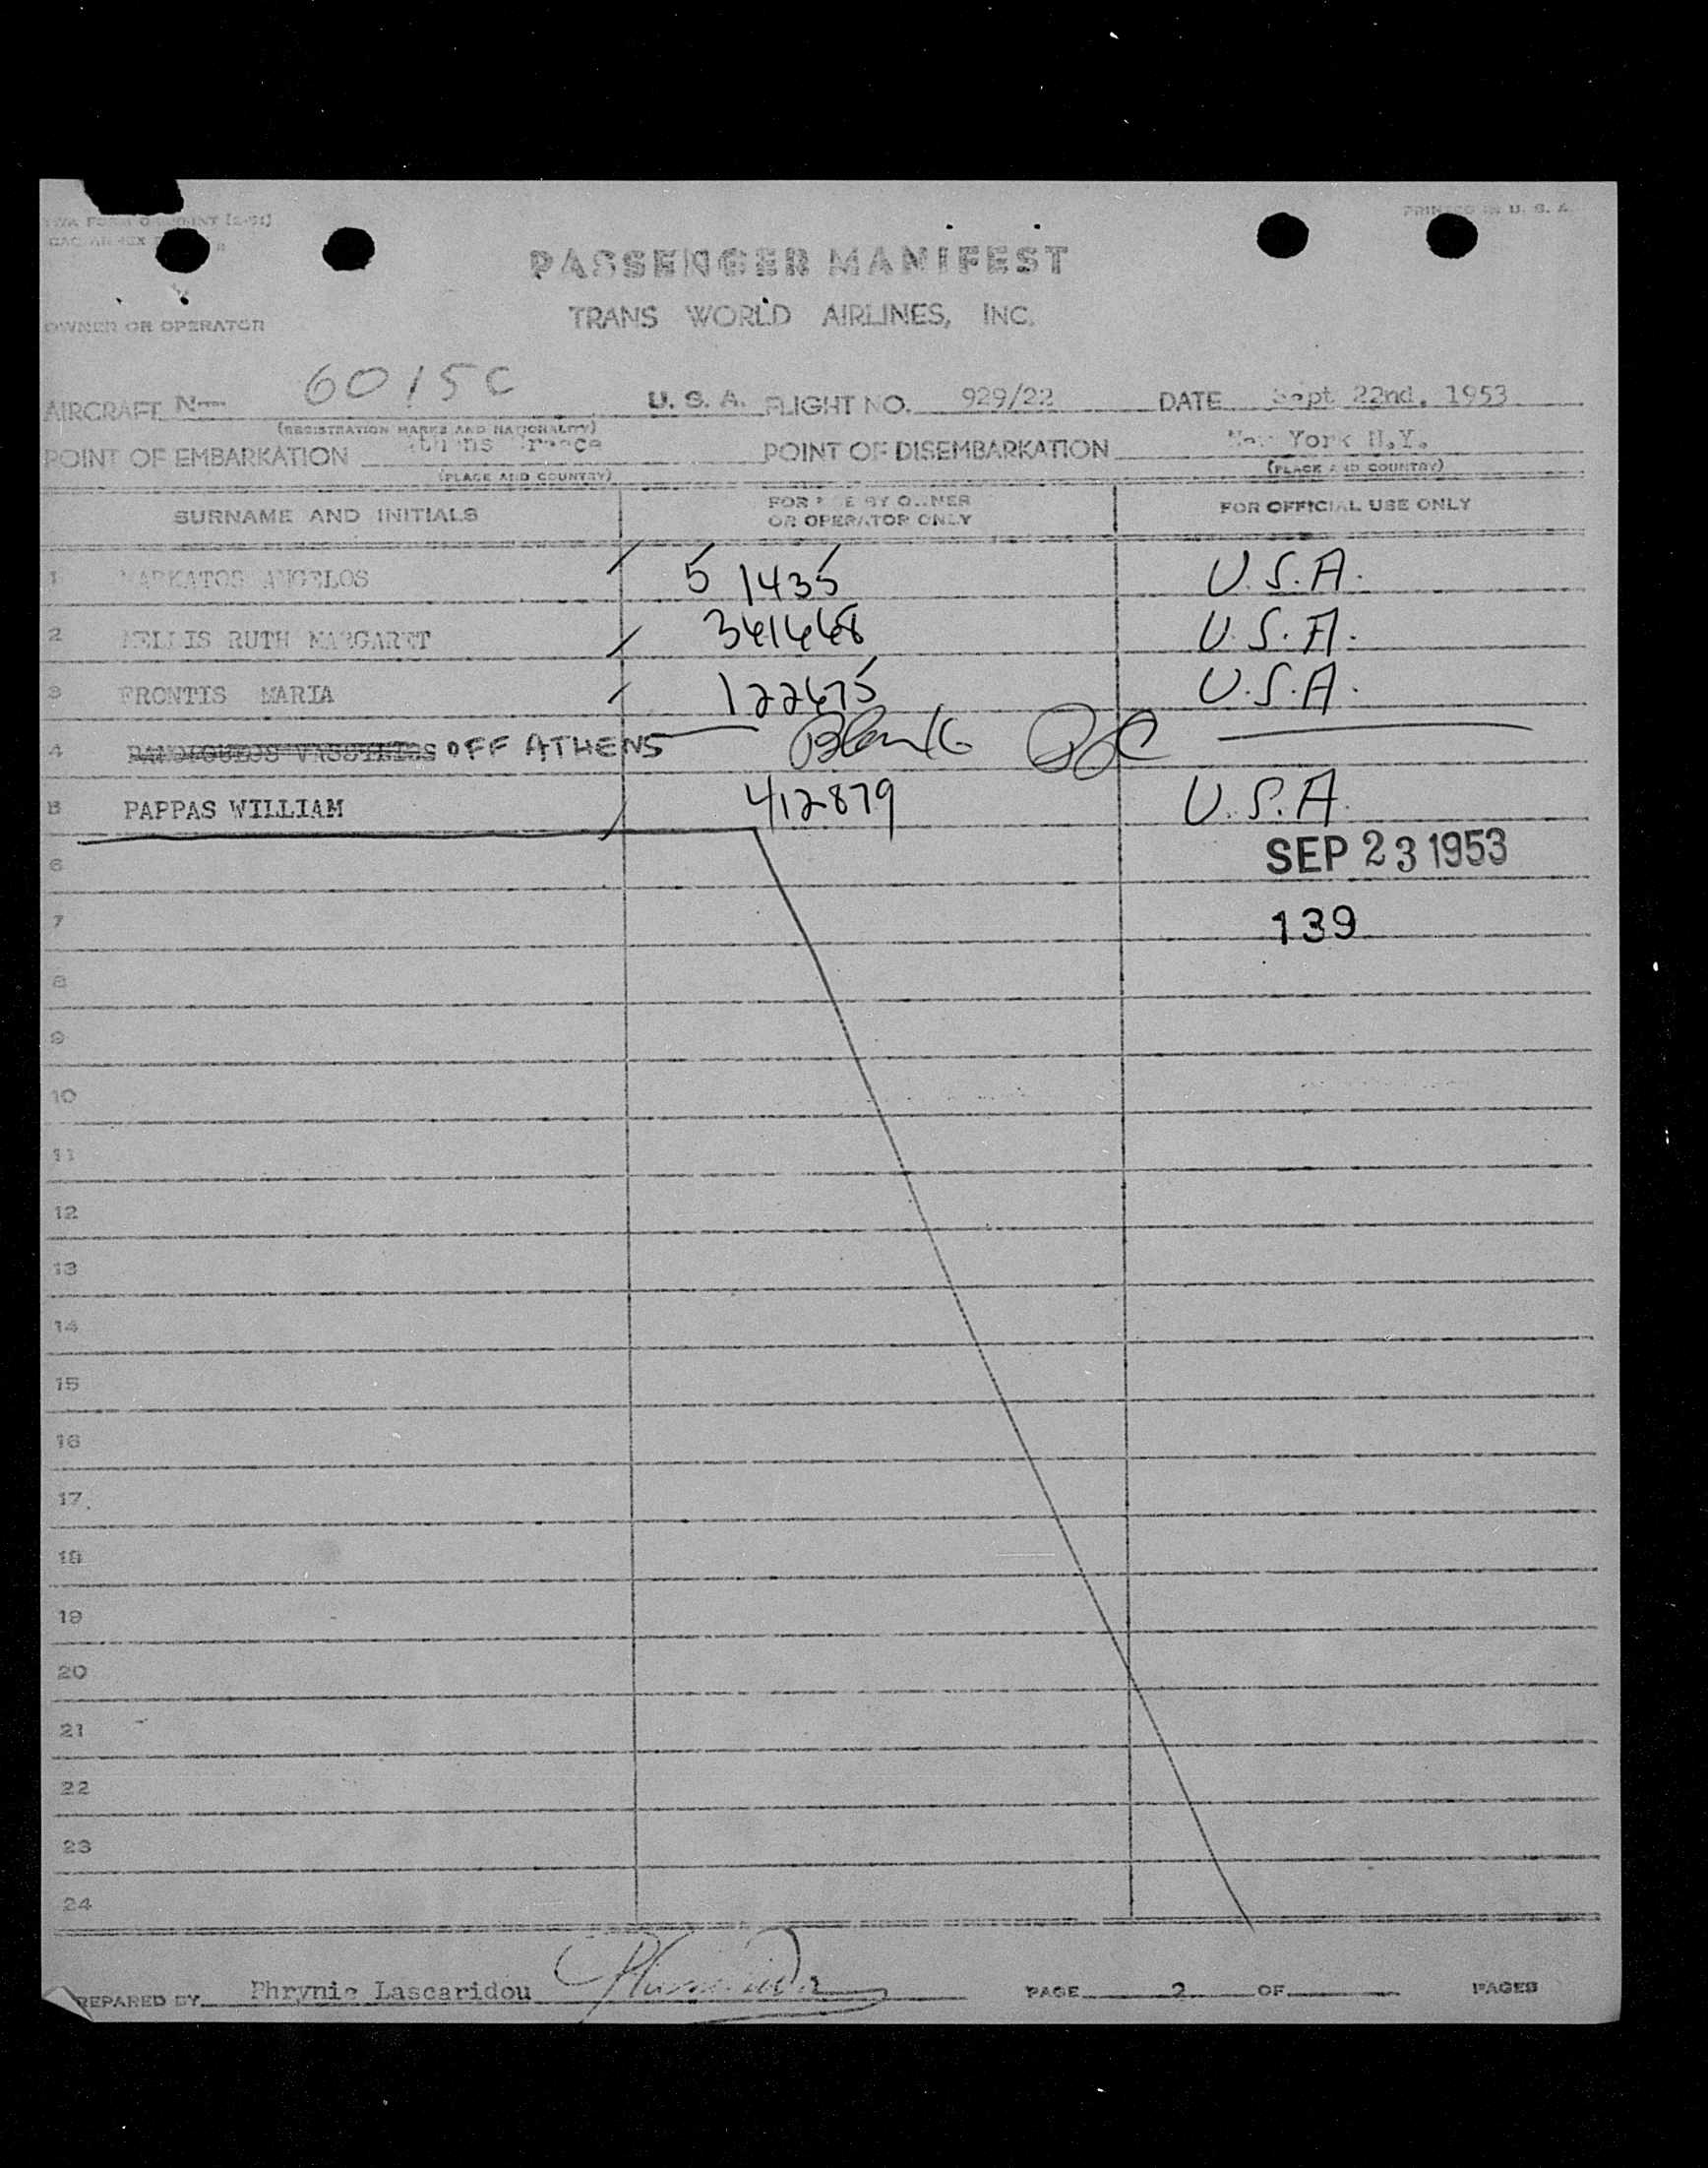 PRINTED IN U. S. A.
PASSENGER MANIFEST
TRANS WORLD AIRLINES, INC.
OWNER OR OPERATOR
AIRCRAFT N— 6015C U. S. A. FLIGHT NO. 929/22 DATE Sept 22nd, 1953
(REGISTRATION MARKS AND NATIONALITY)
POINT OF EMBARKATION Athens Greece POINT OF DISEMBARKATION New York N.Y.
(PLACE AND COUNTRY) (PLACE AND COUNTRY)
SURNAME AND INITIALS FOR USE BY OWNER OR OPERATOR ONLY FOR OFFICIAL USE ONLY
1 ANGELOS 5 1435 U.S.A.
2 RUTH MARGARET 341448 U.S.A.
3 FRONTIS MARIA 122675 U.S.A.
4 OFF ATHENS Blank
5 PAPPAS WILLIAM 412879 U.S.A.
6 SEP 23 1953
7 139
8
9
10
11
12
13
14
15
16
17
18
19
20
21
22
23
24
PREPARED BY Phrynie Lascaridou PAGE 2 OF PAGES